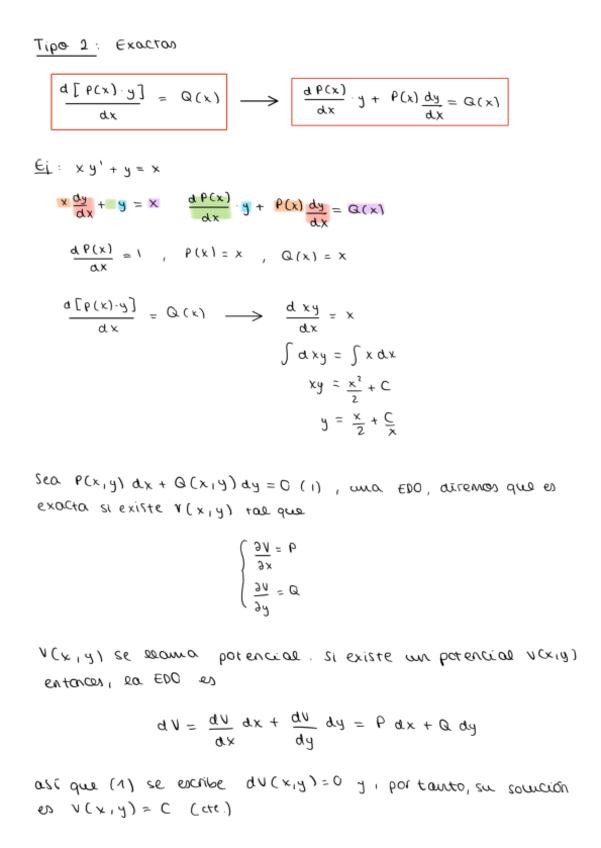 Tipo 2: Exactas
d[P(x)·y]/dx = Q(x) → dP(x)/dx · y + P(x) dy/dx = Q(x)
Ej: xy' + y = x
x dy/dx + y = x    dP(x)/dx · y + P(x) dy/dx = Q(x)
dP(x)/dx = 1 , P(x) = x , Q(x) = x
d[P(x)·y]/dx = Q(x) → d xy/dx = x
∫ dxy = ∫ x dx
xy = x²/2 + C
y = x/2 + C/x
Sea P(x,y) dx + Q(x,y) dy = 0 (1) , una EDO, diremos que es
exacta si existe V(x,y) tal que
{ ∂V/∂x = P
∂V/∂y = Q
V(x,y) se llama potencial. Si existe un potencial V(x,y)
entonces, la EDO es
dV = dV/dx dx + dV/dy dy = P dx + Q dy
así que (1) se escribe dV(x,y)=0 y, por tanto, su solución
es V(x,y) = C (cte.)